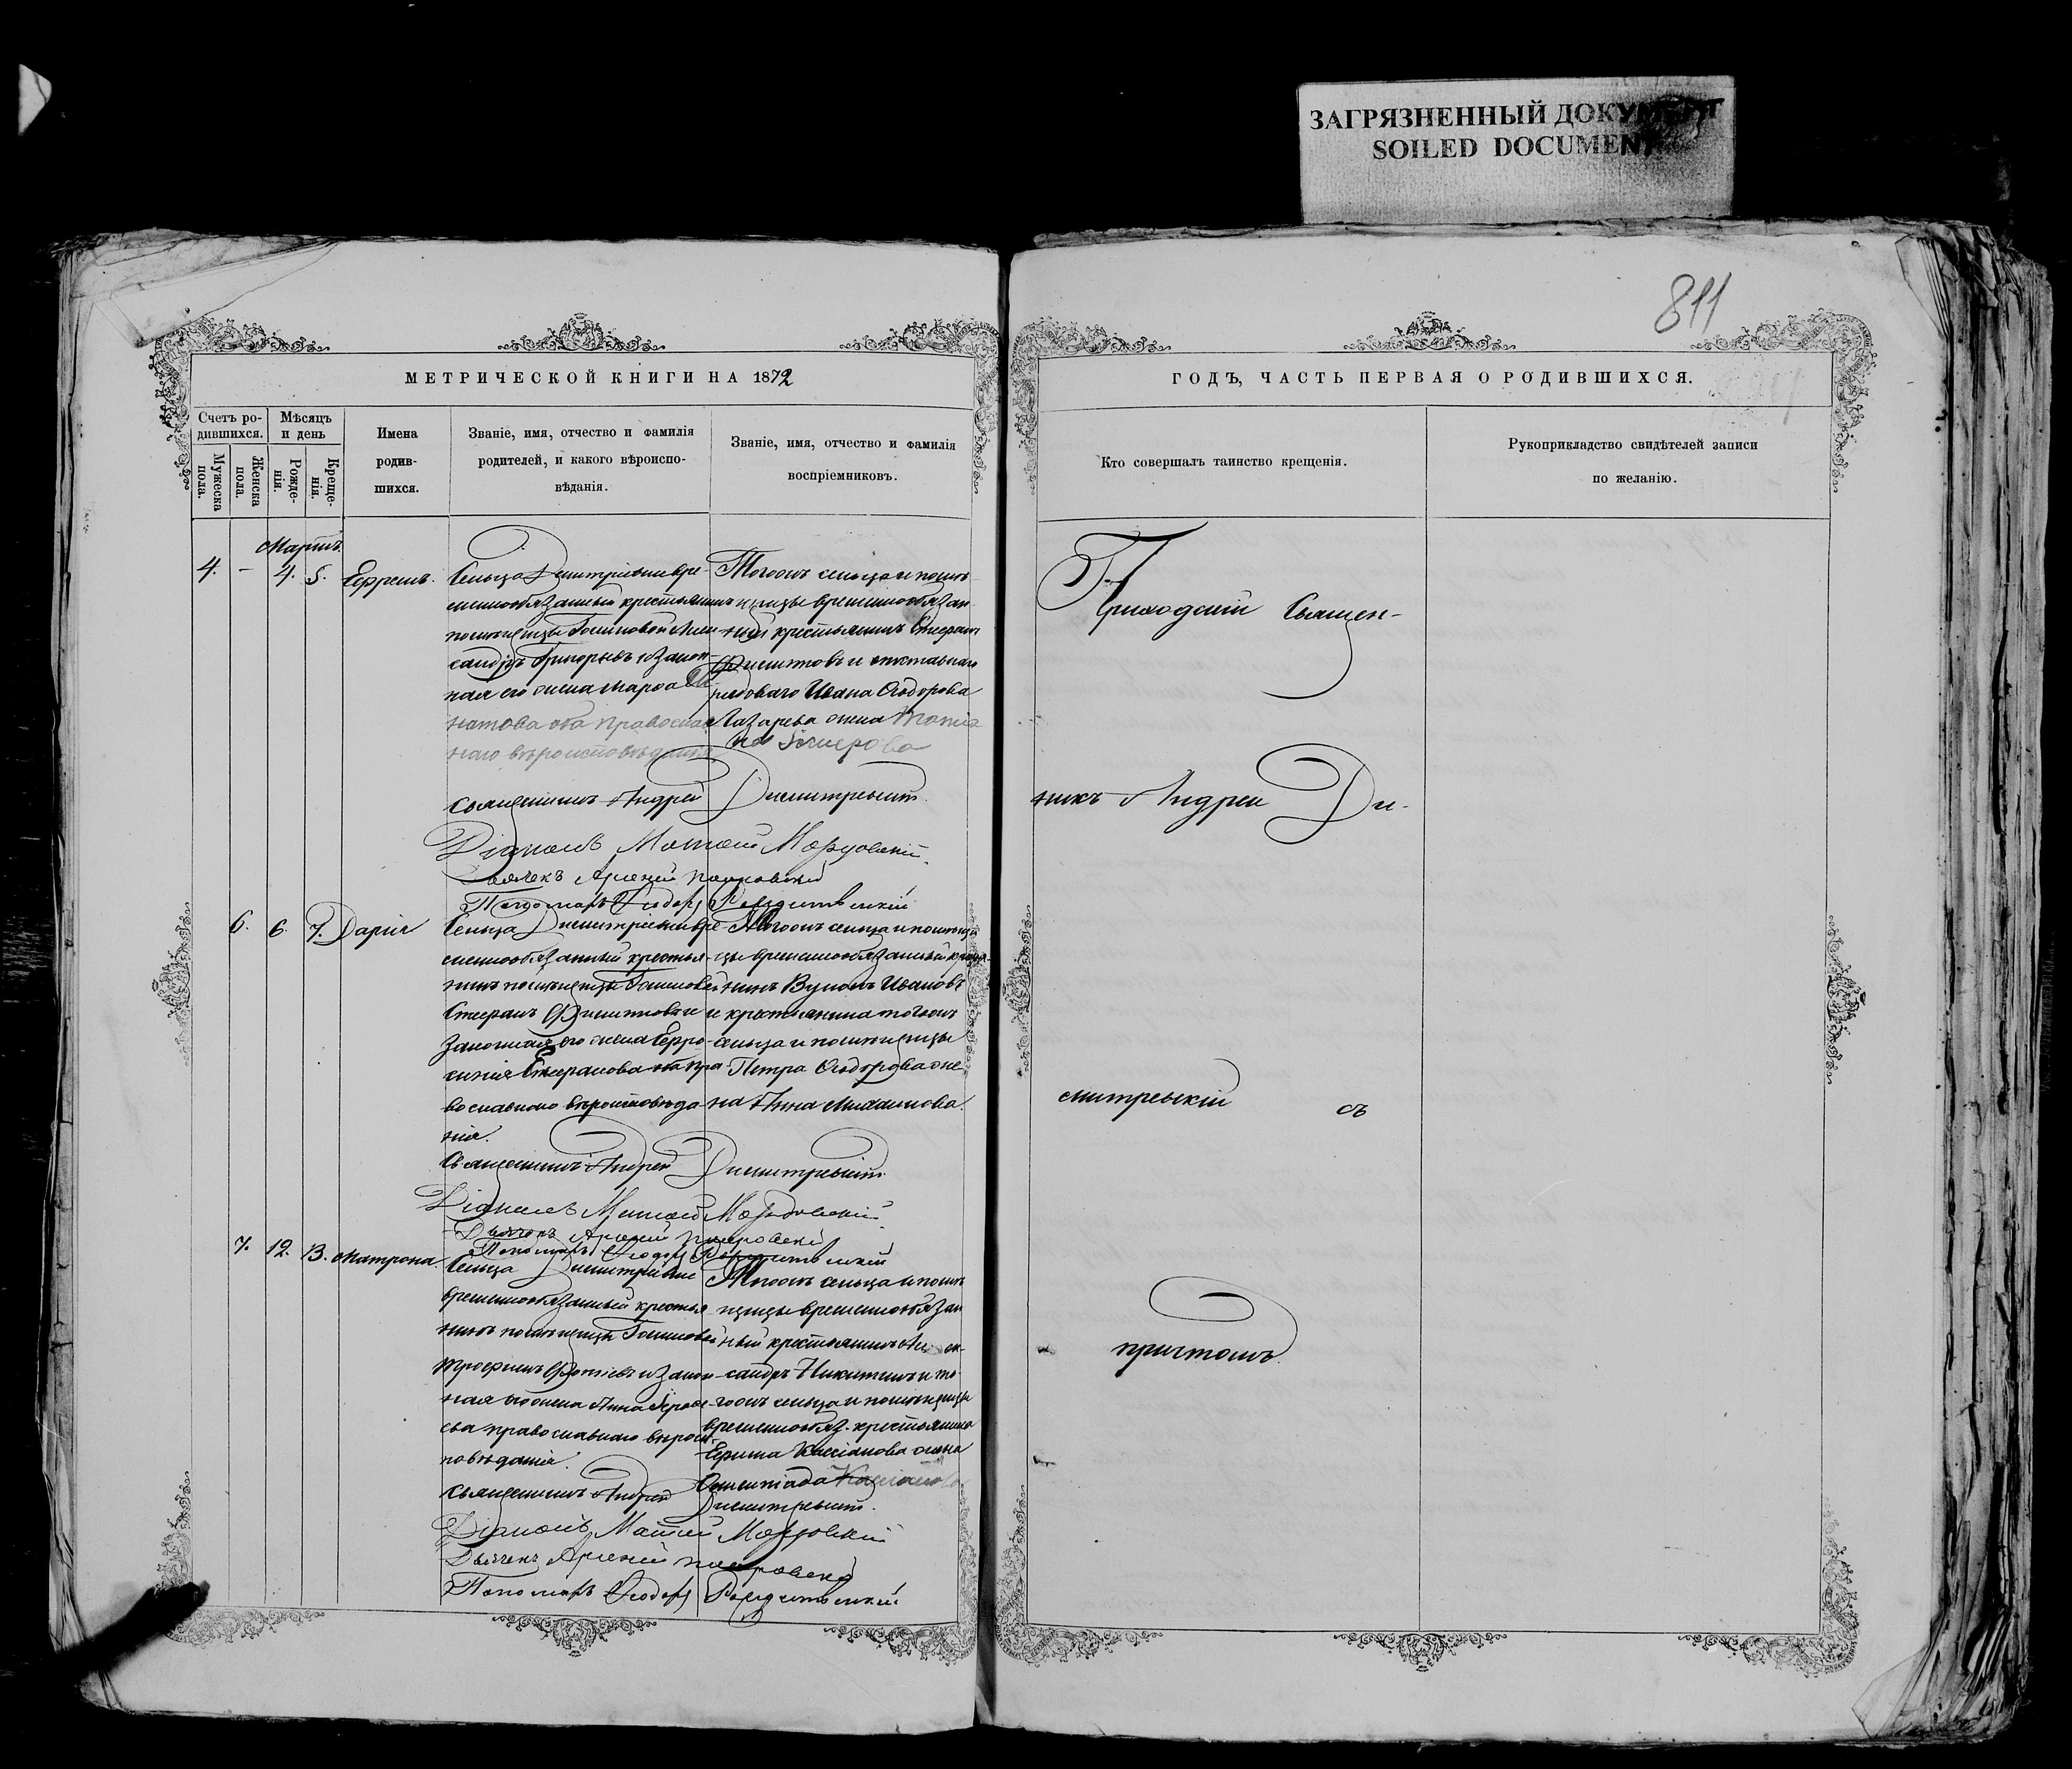 ЗАГРЯЗНЕННЫЙ ДОКУМЕНТ
SOILED DOCUMENT
811
МЕТРИЧЕСКОЙ КНИГИ НА 1872
Счетъ ро-
дившихся.
Мужеска
пола.
Женска
пола.
Мѣсяцъ
и день
Рожде-
нія.
Креще-
нія.
Имена
родив-
шихся.
Званіе, имя, отчество и фамилія
родителей, и какого вѣроиспо-
вѣданія.
Званіе, имя, отчество и фамилія
воспріемниковъ.
Мартъ.
4. – 4. 5. Ефремъ.
Сельца Димитріевки вре-
меннообязанный крестьянинъ
помѣщицы Алек-
сандръ Григорьевъ и закон-
ная его жена Марѳа
православ
наго вѣроисповѣданія
Тогожъ сельца и помѣ
щицы временнообязан
ный крестьянинъ Стефанъ
Филитовъ и отставнаго
рядоваго Ивана Ѳеодорова
Лазарева жена
Священникъ Андрей Димитревскій
Діаконъ Матѳей Мордовскій
Дьячекъ Арсеній Покровскій
Пономарь Ѳеодоръ
6. 6. 7. Дарія
Сельца Димитріевки вре-
меннообязанный крестья-
нинъ помѣщицы
Стефанъ Филитовъ и
законная его жена Ефро-
синія Стефанова оба пра
вославнаго вѣроисповѣда-
нія.
Тогожъ сельца и помѣщи
цы временнообязанный крестья-
нинъ Вуколъ Ивановъ
и крестьянина тогожъ
сельца и помѣщицы
Петра Ѳеодорова же
на Анна Михаилова.
Священникъ Андрей Димитревскій
Діаконъ Матѳей Мордовскій
Дьячекъ Арсеній Покровскій
Пономарь Ѳеодоръ
7. 12. 13. Матрона.
Сельца Димитріевки
временнообязанный крестья
нинъ помѣщицы
Трофимъ Фотіевъ и закон
ная его жена Анна
ева православнаго вѣроис-
повѣданія.
Тогожъ сельца и помѣ
щицы временнообязан
ный крестьянинъ Алек-
сандръ Никитинъ и то-
гожъ сельца и помѣщицы
временнообяз. крестьянина
Касіанова жена
Касіанова
Священникъ Андрей Димитревскій.
Діаконъ Матѳей Мордовскій
Дьячекъ Арсеній Покровскій
Пономарь Ѳеодоръ
ГОДЪ, ЧАСТЬ ПЕРВАЯ О РОДИВШИХСЯ.
Кто совершалъ таинство крещенія.
Рукоприкладство свидѣтелей записи
по желанію.
Приходскій Священ-
никъ Андрей Ди-
митревскій съ
причтомъ.